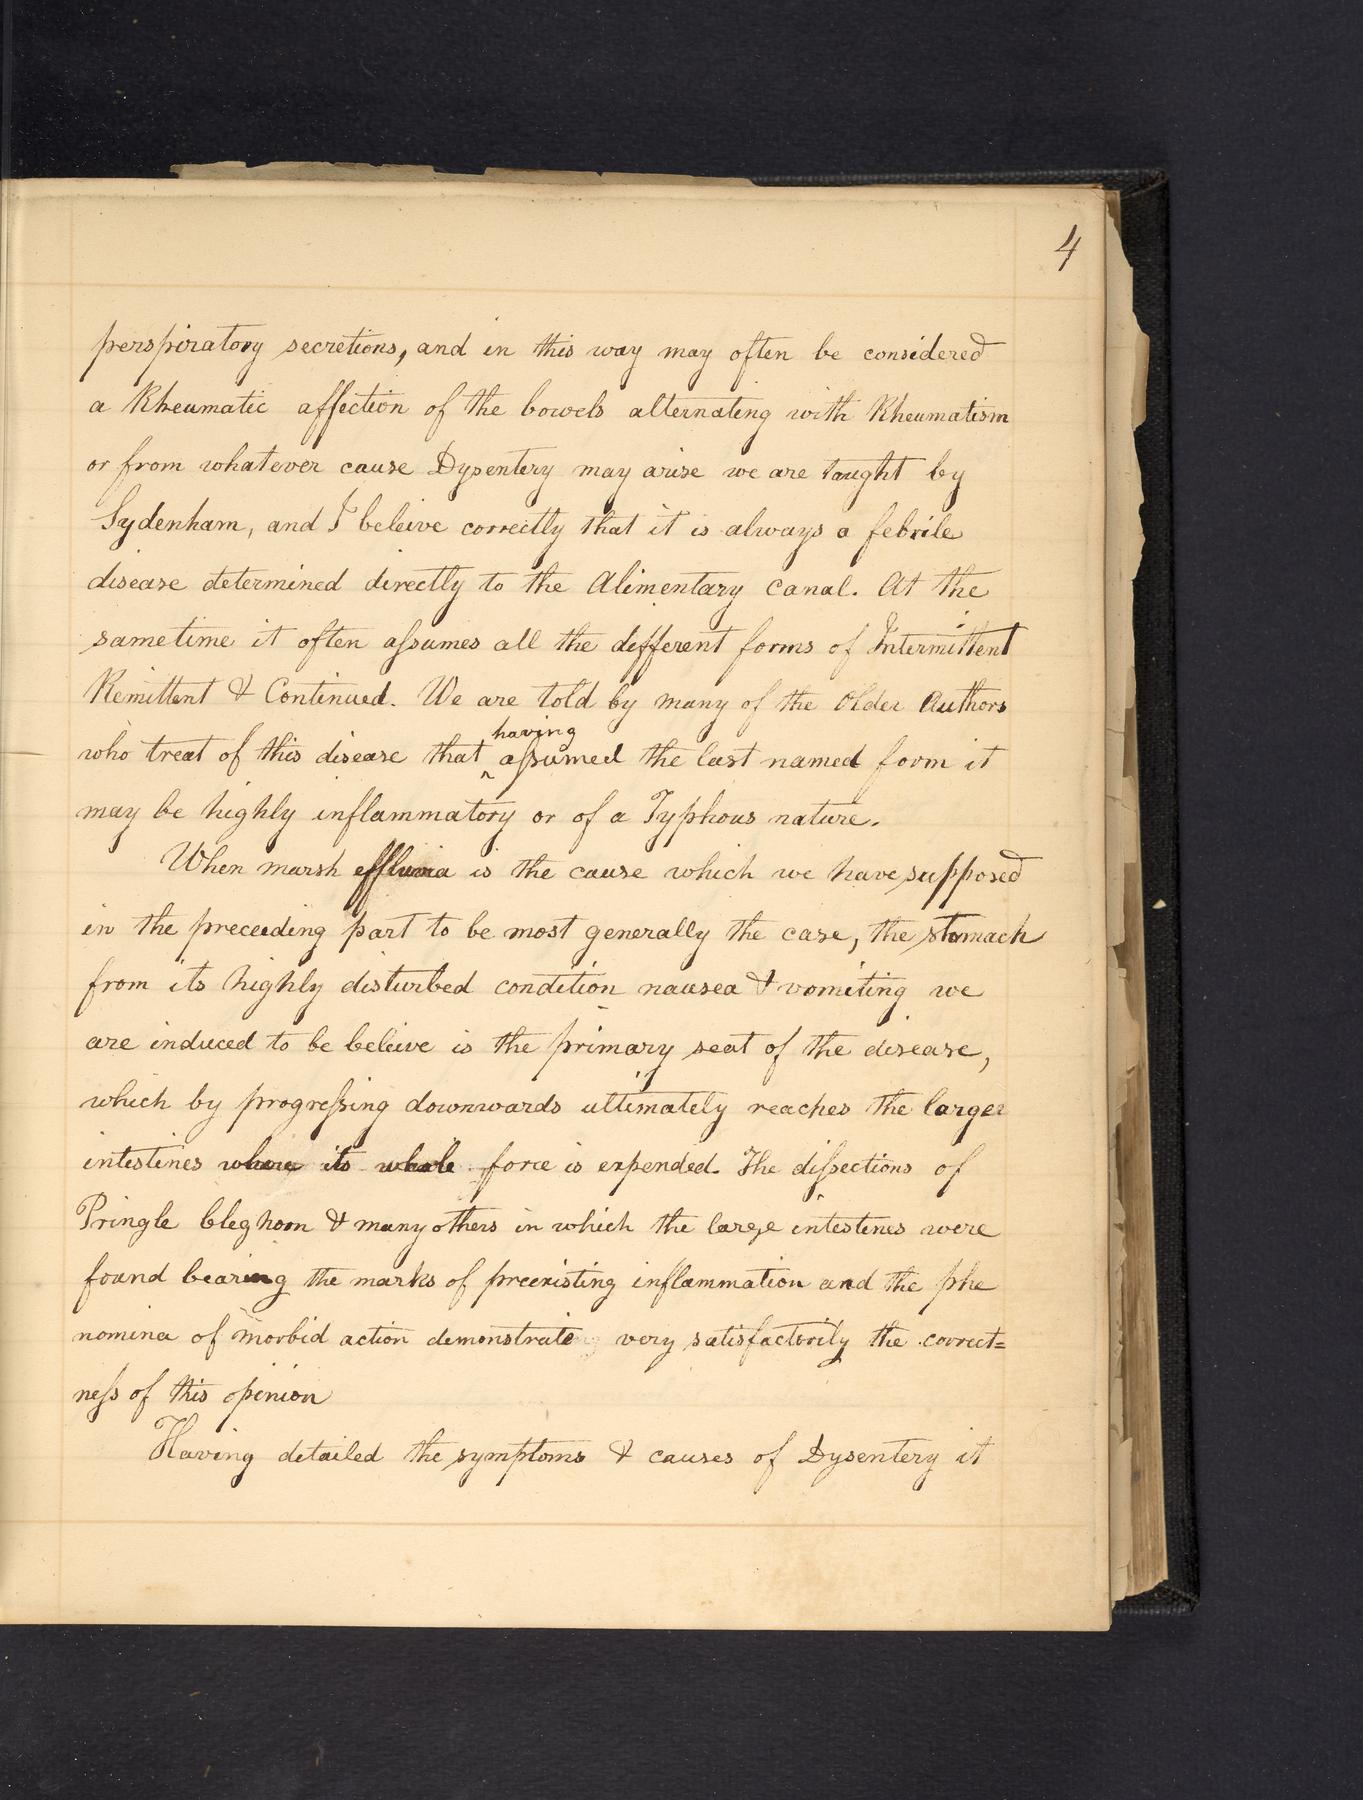 4
perspiratory secretions, and in this way may often be considered
a Rheumatic affection of the bowels alternating with Rheumatism
or from whatever cause Dysentery may arise we are taught by
Sydenham, and I beleive correctly that it is always a febrile
disease determined directly to the Alimentary canal. At the
sametime it often aſsumes all the different forms of Intermittent
Remittent & Continued. We are told by many of the Older Authors
having
who treat of this disease that ‸ aſsumed the last named form it
may be highly inflammatory or of a Typhous nature.
When marsh effluvia is the cause which we have supposed
in the preceeding part to be most generally the case, the stomach
from its highly disturbed condition nausea & vomiting we
are induced to be beleive is the primary seat of the disease,
which by progreſsing downwards ultimately reaches the larger
intestines where its whole force is expended. The diſsections of
Pringle Cleghorn & many others in which the large intestines were
found bearing the marks of preexisting inflammation and the phe
nomina of morbid action demonstrate very satisfactorily the correct=
neſs of this opinion
Having detailed the symptoms & causes of Dysentery it